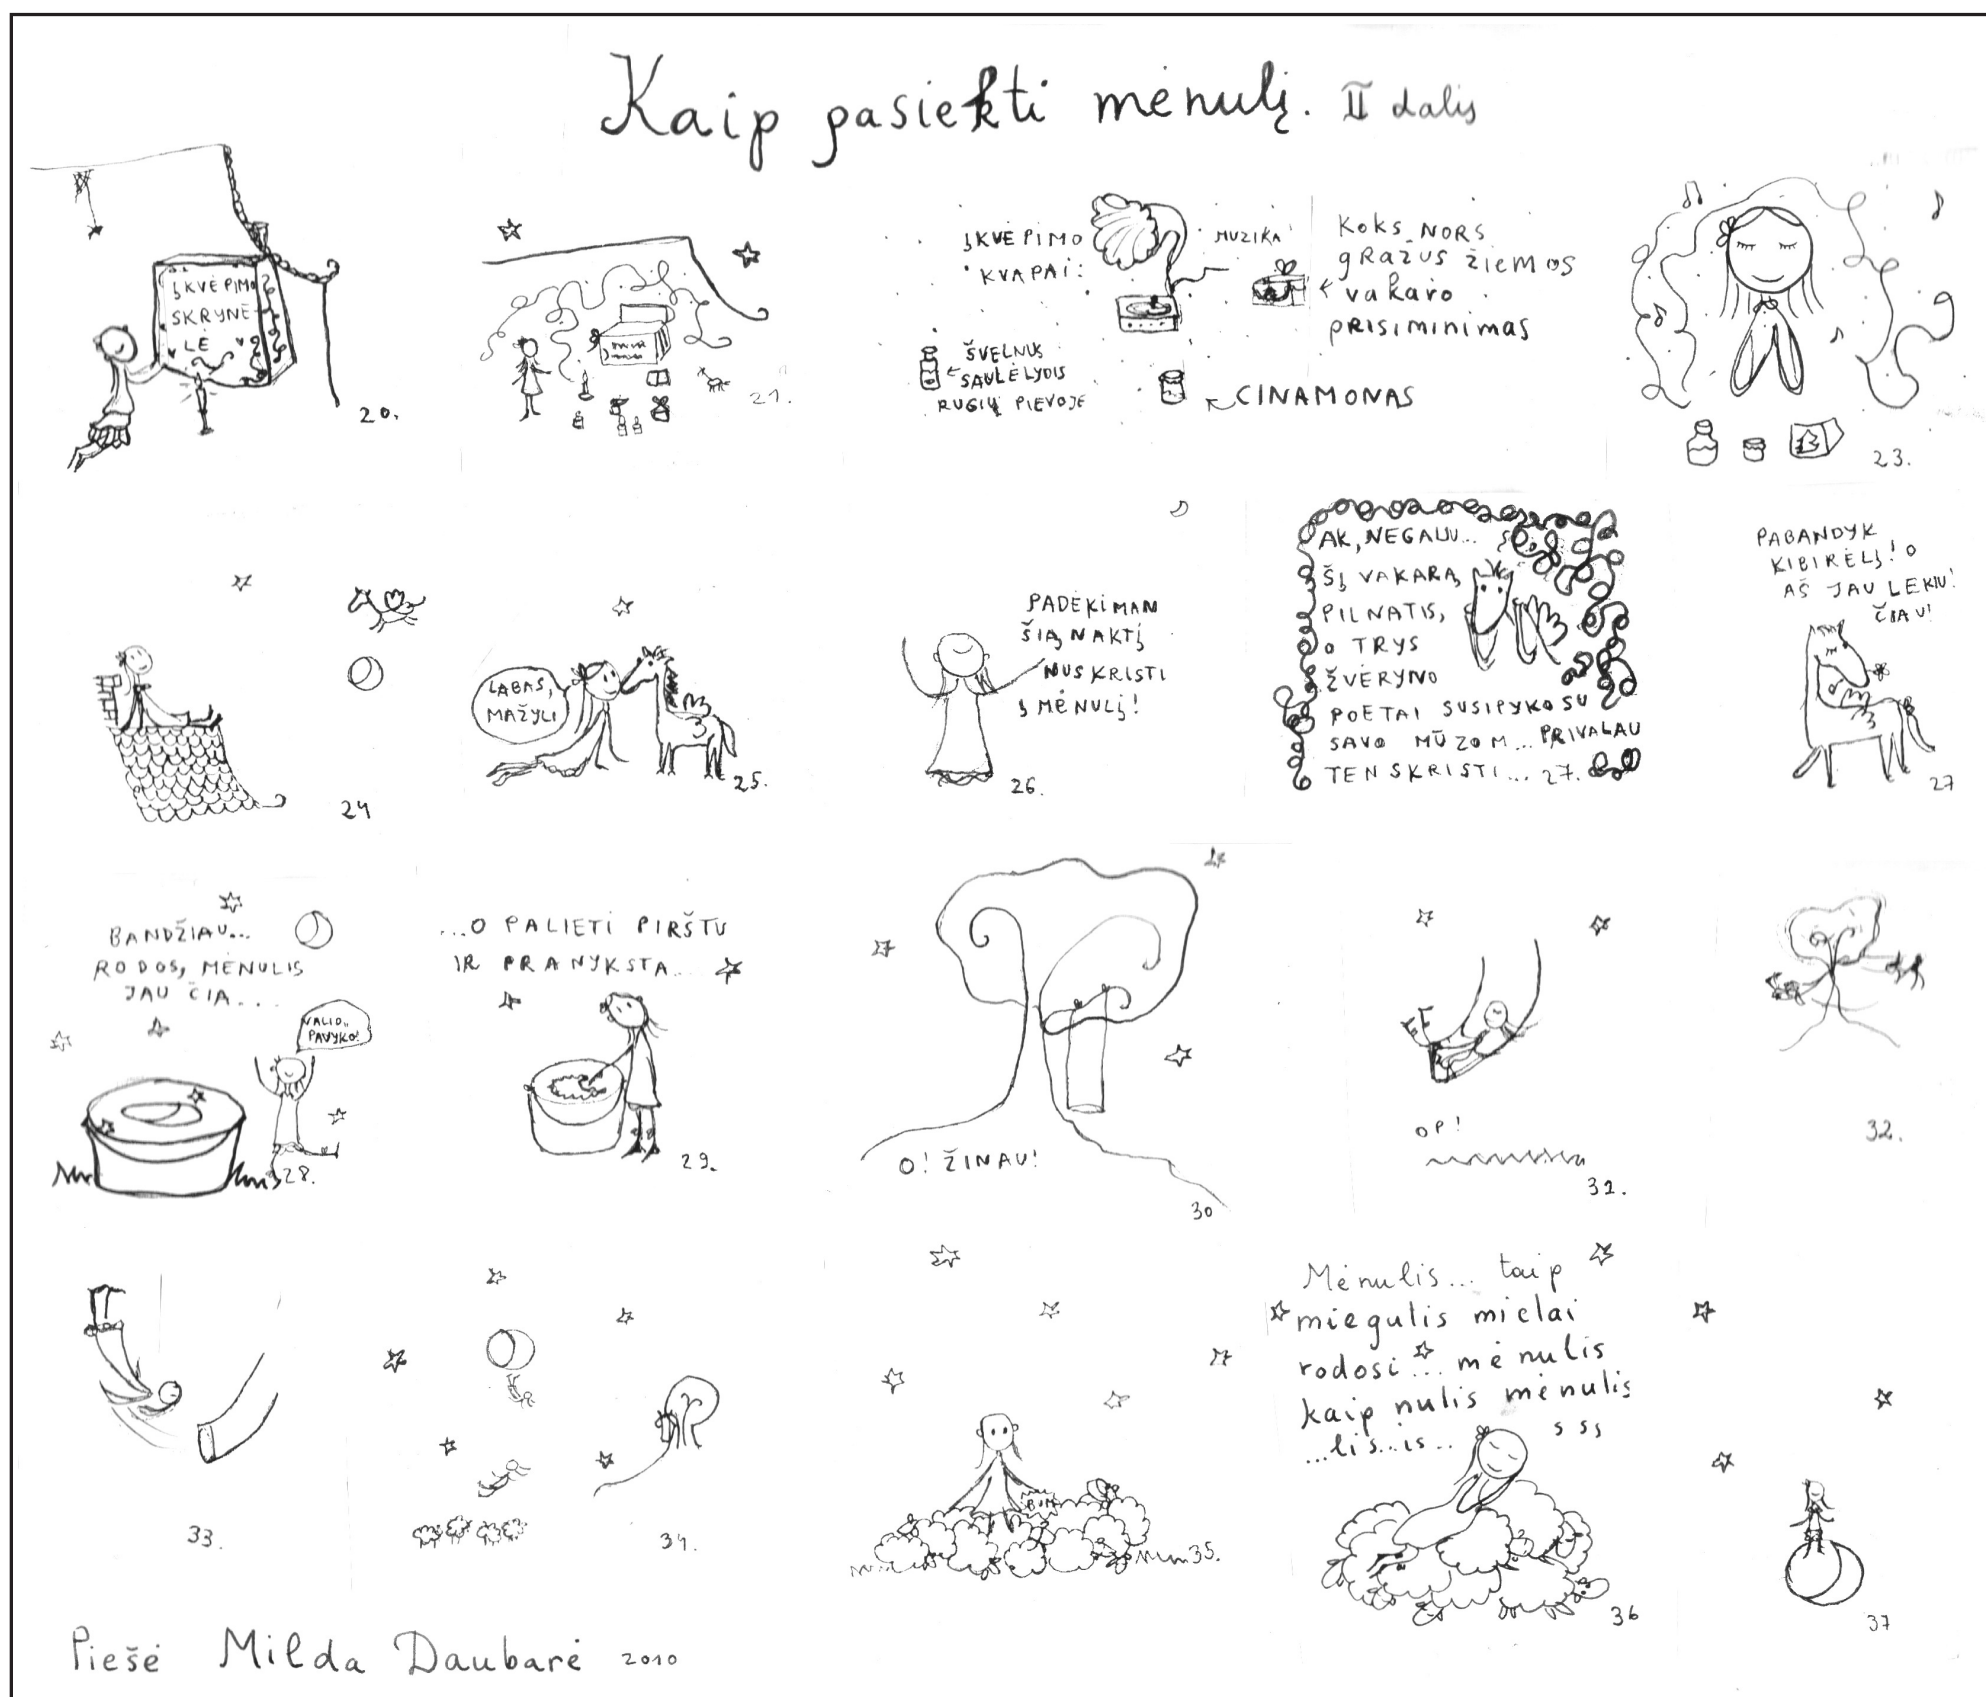 Kaip pasiekti mėnulį. II dalis
ĮKVĖPIMO
SKRYNĖ-
LĖ
20.
21.
ĮKVĖPIMO
KVAPAI:
MUZIKA
KOKS NORS
gRAŽUS ŽIEMOS
vaKaro
PRISIMINIMAS
ŠVELNUS
SAULĖLYDIS
RUGIŲ PIEVOJE
CINAMONAS
23.
24
LABAS,
MAŽYLI
25.
PADĖKI MAN
ŠIĄ NAKTĮ
NUSKRISTI
Į MĖNULĮ!
26.
AK, NEGALIU...
ŠĮ VAKARĄ
PILNATIS,
O TRYS
ŽVĖRYNO
POETAI SUSIPYKO SU
SAVO MŪZOM... PRIVALAU
TEN SKRISTI... 27.
PABANDYK
KIBIRĖLĮ! O
AŠ JAU LEKIU!
ČIAU!
27
BANDŽIAU...
RODOS, MĖNULIS
JAU ČIA...
VALIO..
PAVYKO!
28.
...O PALIETI PIRŠTU
IR PRANYKSTA...
29.
O! ŽINAU!
30
OP!
31.
32.
33.
34.
BUM
35.
Mėnulis... taip
miegulis mielai
rodosi... mėnulis
kaip nulis mėnulis
...lis...is.. s ss
36
37
Piešė Milda Daubarė 2010